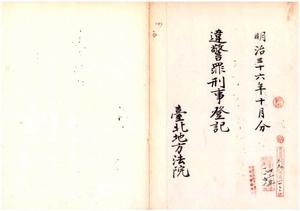 明治三十六年十月分
違警罪刑事登記
臺北地方法院